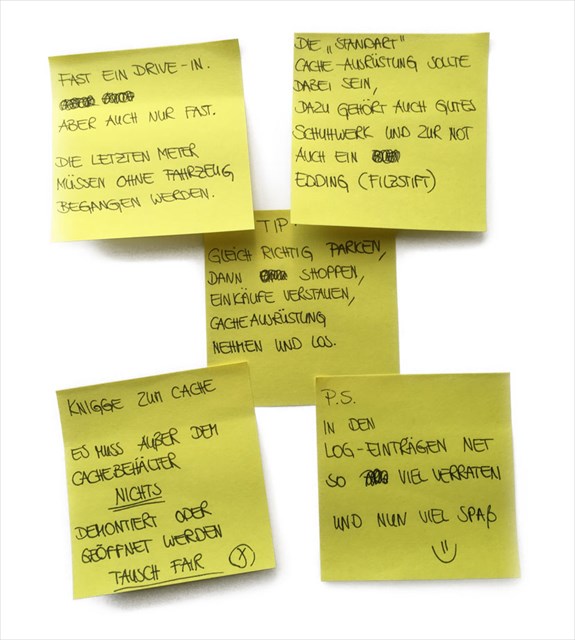 FAST EIN DRIVE-IN.
ABER AUCH NUR FAST.
DIE LETZTEN METER
MÜSSEN OHNE FAHRZEUG
BEGANGEN WERDEN.
DIE „STANDART"
CACHE-AUSRÜSTUNG SOLLTE
DABEI SEIN,
DAZU GEHÖRT AUCH GUTES
SCHUHWERK UND ZUR NOT
AUCH EIN
EDDING (FILZSTIFT)
TIP.
GLEICH RICHTIG PARKEN,
DANN SHOPPEN,
EINKÄUFE VERSTAUEN,
CACHEAUSRÜSTUNG
NEHMEN UND LOS.
KNIGGE ZUM CACHE
ES MUSS AUßER DEM
CACHEBEHÄLTER
NICHTS
DEMONTIERT ODER
GEÖFFNET WERDEN
TAUSCH FAIR
P.S.
IN DEN
LOG-EINTRÄGEN NET
SO VIEL VERRATEN
UND NUN VIEL SPAß